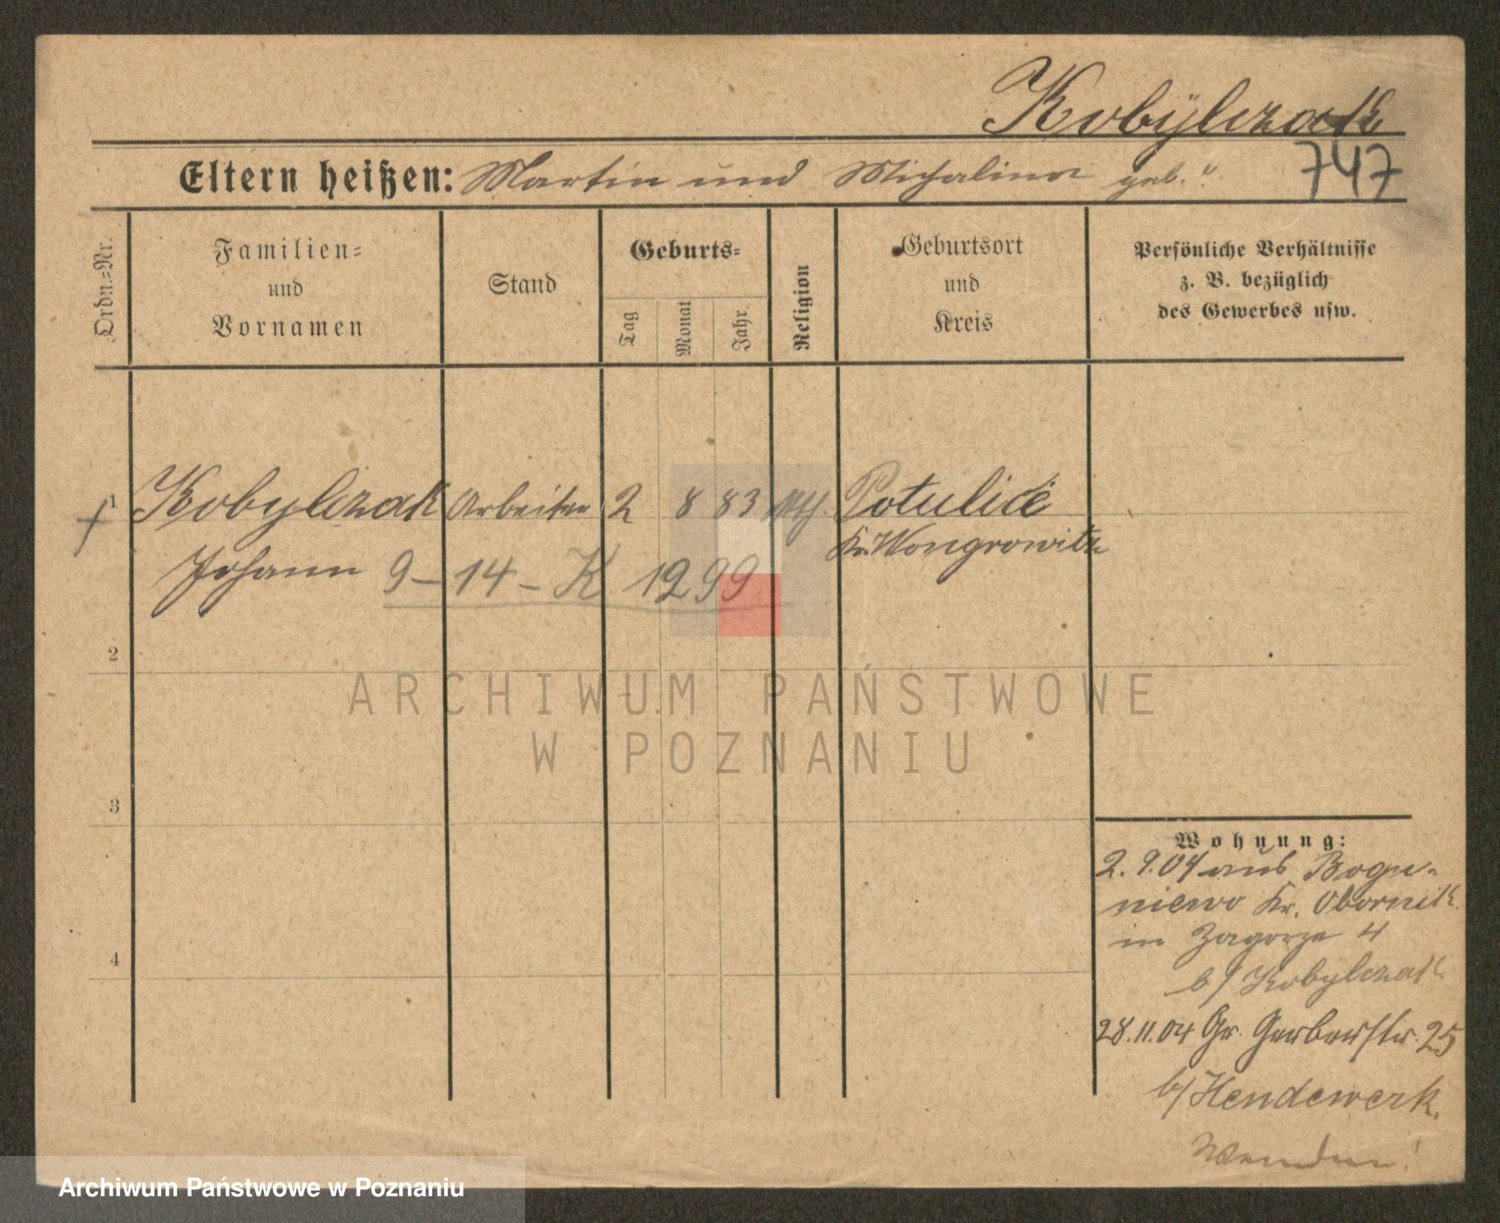 Kobÿlczak
Eltern heißen: Martin und Michalina geb. "
747
Ordn.-Nr.
Familien-
und
Vornamen
Stand
Geburts-
Tag
Monat
Jahr.
Religion
Geburtsort
und
Kreis
Persönliche Verhältnisse
z. B. bezüglich
des Gewerbes usw.
1 Kobylczak Arbeiter 2 8 83 kth. Potulice
Kr. Wongrowitz
Johann 9-14-K 1299
2
ARCHIWUM PAŃSTWOWE
W POZNANIU
3
Wohnung:
2.9.04 aus Bogu-
niewo Kr. Obornik
in Zagorze 4
b/ Kobylczak
4
28.11.04 Gr. Gerberstr. 25
b/ Hendewerk.
Wenden!
Archiwum Państwowe w Poznaniu